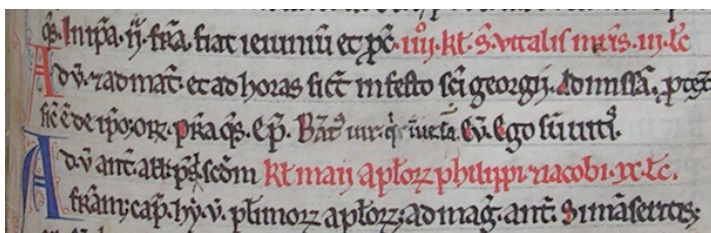 qs. In ipa. ij. fra. fiat ieiuniũ et pc̃. iiij. kl. S. vitalis mr̃is. iij. lc̃
Ad v̄. ⁊ ad mat̃. et ad horas sic̃t in festo sc̃i georgij. Ad missã.
sic ẽ de ip̃o. or̃. pr̃a qs. ep̃. Bãt uir. q̃ Ev̄. Ego sũ uitis.
Ad v̄ ant̃. all̃ scđm kl. maij aplor̃ philippi ⁊ iacobi. ix. lc̃.
fr̃am. cap̃. hy. v̄. pl̃imor̃ aplor̃. ad mag̃. ant̃. Si manseritis.